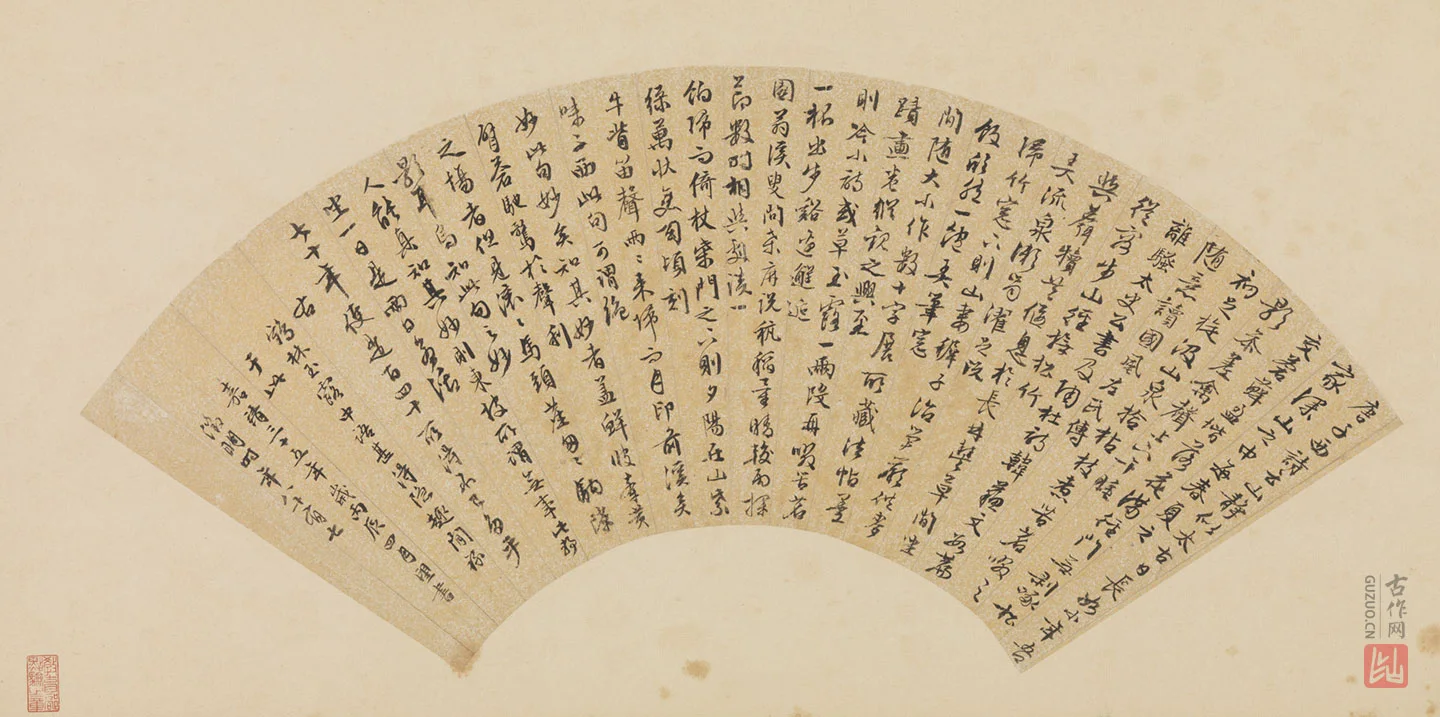 唐子西詩云山靜似太古日長如小年吾
家深山之中每春夏之
交蒼蘚盈階落花滿徑門無剝啄松
影參差禽聲上下午睡
初足旋汲山泉拾松枝煮苦茗啜之
隨意讀國風左氏傳
離騷太史公書及陶杜詩韓蘇文數篇
從容步山徑撫松竹
與麛犢共偃息於長林豐草間坐
弄流泉漱齒濯足既
歸竹窗下則山妻稚子治笋蕨供麥
飯欣然一飽弄筆窗
間隨大小作數十字展所藏法帖墨
蹟畫卷縱觀之興至
則吟小詩或草玉露一兩段再啜苦茗
一杯出步谿邊邂逅
園翁溪叟問桑麻說秔稻量晴較雨探
節數時相與劇談一
餉歸而倚杖柴門之下則夕陽在山紫
綠萬狀變幻頃刻
牛背笛聲兩兩來歸而月印前溪矣
味子西此句可謂絕
妙此句妙矣知其妙者蓋鮮彼牽黃
臂蒼馳騖於聲利
之場者但見滾滾馬頭塵匆匆駒隙
影耳烏知此句之妙
人能真知其妙則東坡所謂無事此靜
坐一日是兩日若活
七十年便是百四十所得不已多乎
右鶴林玉露中語甚得隱趣閒錄
于此
嘉靖三十五年歲丙辰四月望書
徵明時年八十有七
古作网
GUZUO.CN